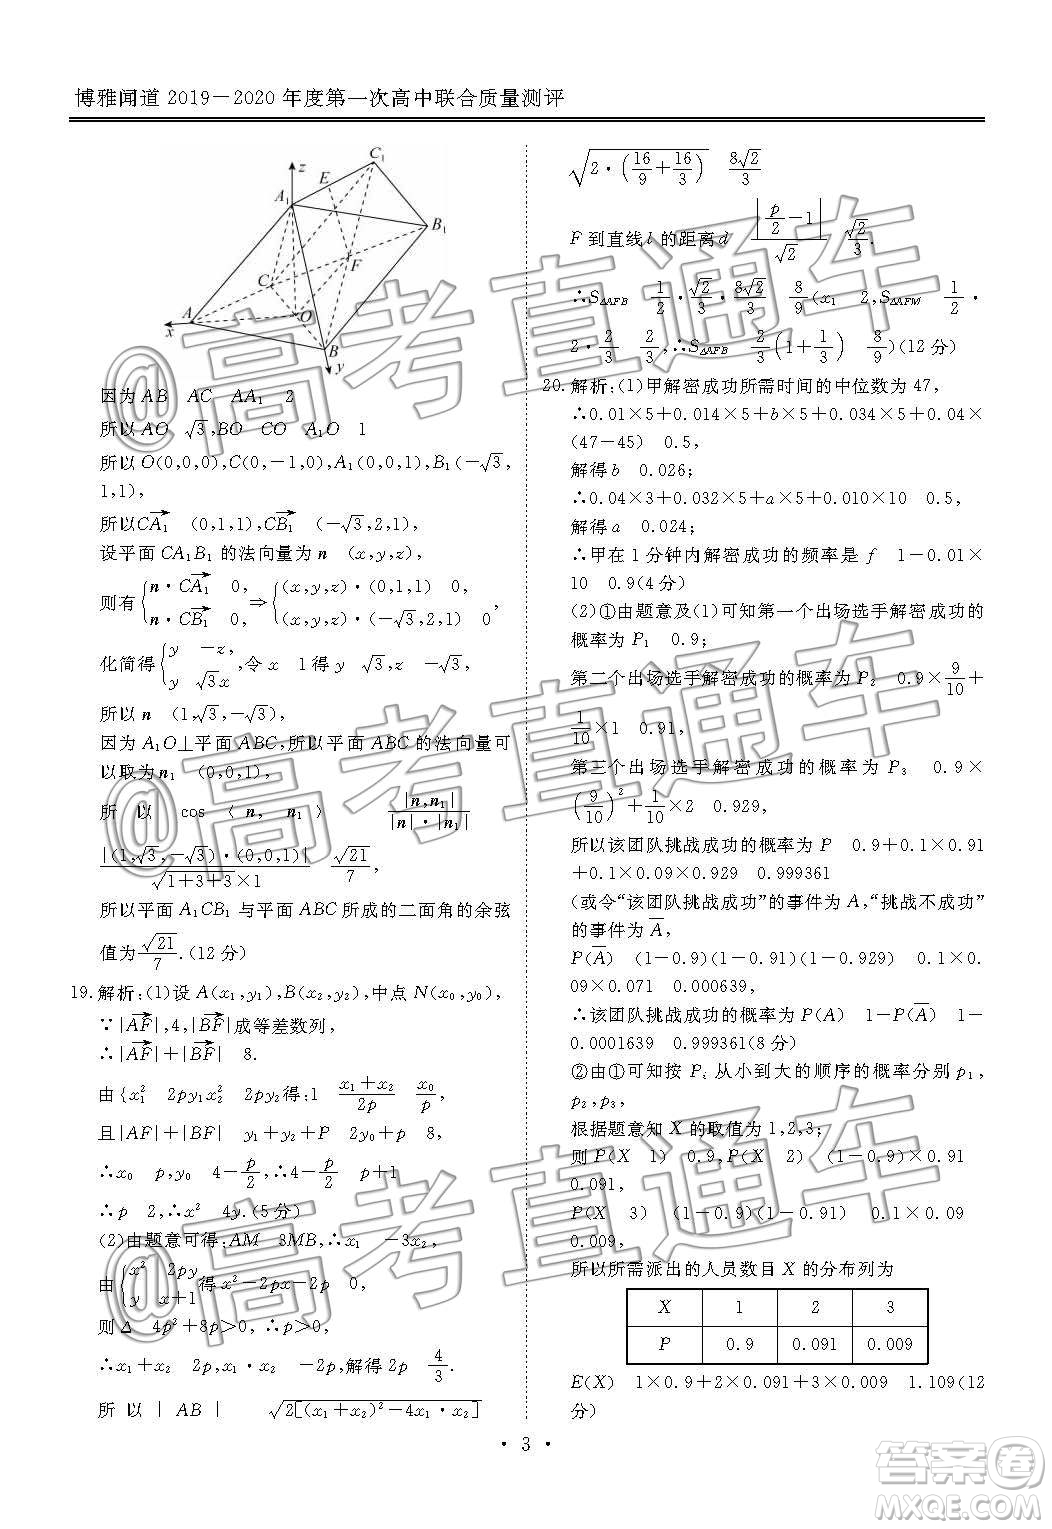 博雅闻道 2019－2020 年度第一次高中联合质量测评
z
C₁
E
A₁
B₁
F
C
A
O
x
B
y
因为 AB　AC　AA₁　2
所以 AO　√3,BO　CO　A₁O　1
所以 O(0,0,0),C(0,-1,0),A₁(0,0,1),B₁(-√3,
1,1),
所以 CA₁→　(0,1,1),CB₁→　(-√3,2,1),
设平面 CA₁B₁ 的法向量为 n　(x,y,z),
则有 {n·CA₁→　0, n·CB₁→　0, ⇒ {(x,y,z)·(0,1,1)　0, (x,y,z)·(-√3,2,1)　0,
化简得 {y　-z, y　√3x ,令 x　1 得 y　√3,z　-√3,
所以 n　(1,√3,-√3),
因为 A₁O⊥平面 ABC,所以平面 ABC 的法向量可
以取为 n₁　(0,0,1),
所 以　cos 〈 n, n₁ 〉　|n,n₁|/(|n|·|n₁|)
|(1,√3,-√3)·(0,0,1)|/(√(1+3+3)×1)　√21/7,
所以平面 A₁CB₁ 与平面 ABC 所成的二面角的余弦
值为 √21/7.(12 分)
19. 解析:(1)设 A(x₁,y₁),B(x₂,y₂),中点 N(x₀,y₀),
∵|AF→|,4,|BF→|成等差数列,
∴|AF→|+|BF→|　8.
由{x₁²　2py₁x₂²　2py₂得:1　(x₁+x₂)/2p　x₀/p,
且|AF|+|BF|　y₁+y₂+P　2y₀+p　8,
∴x₀　p,y₀　4-p/2,∴4-p/2　p+1
∴p　2,∴x²　4y.(5 分)
(2)由题意可得:AM　3MB,∴x₁　-3x₂,
由 {x²　2py y　x+1 得 x²-2px-2p　0,
则 Δ　4p²+8p>0,∴p>0,
∴x₁+x₂　2p,x₁·x₂　-2p,解得 2p　4/3.
所 以 | AB |　√(2[(x₁+x₂)²-4x₁·x₂])
√(2·(16/9+16/3))　8√2/3
F 到直线 l 的距离 d　|p/2-1|/√2　√2/3.
∴S△AFB　1/2·√2/3·8√2/3　8/9(x₁　2,S△AFM　1/2·
2·2/3　2/3,∴S△AFB　2/3(1+1/3)　8/9)(12 分)
20. 解析:(1)甲解密成功所需时间的中位数为 47,
∴0.01×5+0.014×5+b×5+0.034×5+0.04×
(47-45)　0.5,
解得 b　0.026;
∴0.04×3+0.032×5+a×5+0.010×10　0.5,
解得 a　0.024;
∴甲在 1 分钟内解密成功的频率是 f　1-0.01×
10　0.9(4 分)
(2)①由题意及(1)可知第一个出场选手解密成功的
概率为 P₁　0.9;
第二个出场选手解密成功的概率为 P₂　0.9×9/10+
1/10×1　0.91,
第三个出场选手解密成功的概率为 P₃　0.9×
(9/10)²+1/10×2　0.929,
所以该团队挑战成功的概率为 P　0.9+0.1×0.91
+0.1×0.09×0.929　0.999361
(或令“该团队挑战成功”的事件为 A,“挑战不成功”
的事件为 A̅,
P(A̅)　(1-0.9)(1-0.91)(1-0.929)　0.1×
0.09×0.071　0.000639,
∴该团队挑战成功的概率为 P(A)　1-P(A̅)　1-
0.0001639　0.999361(8 分)
②由①可知按 Pᵢ 从小到大的顺序的概率分别 p₁,
p₂,p₃,
根据题意知 X 的取值为 1,2,3;
则 P(X　1)　0.9,P(X　2)　(1-0.9)×0.91
0.091,
P(X　3)　(1-0.9)(1-0.91)　0.1×0.09
0.009,
所以所需派出的人员数目 X 的分布列为
X　1　2　3
P　0.9　0.091　0.009
E(X)　1×0.9+2×0.091+3×0.009　1.109(12
分)
· 3 ·
@高考直通车
@高考直通车
@高考直通车
答案圈
MXQE.COM